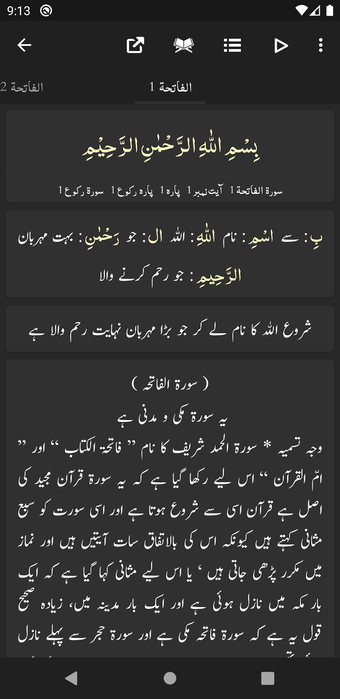 9:13
الفاتحة 1
الفاتحة 2
بِسْمِ اللهِ الرَّحْمٰنِ الرَّحِيْمِ
سورۃ الفاتحۃ 1 آیت نمبر 1 پارہ 1 پارہ رکوع 1 سورۃ رکوع 1
بِ: سے اسْمِ: نام اللهِ: اللہ ال: جو رَحْمٰنِ: بہت مہربان
الرَّحِيْمِ: جو رحم کرنے والا
شروع اللہ کا نام لے کر جو بڑا مہربان نہایت رحم والا ہے
( سورۃ الفاتحہ )
یہ سورۃ مکی و مدنی ہے
وجہ تسمیہ * سورۃ الحمد شریف کا نام ” فاتحۃ الکتاب “ اور ”
امّ القرآن “ اس لیے رکھا گیا ہے کہ یہ سورۃ قرآن مجید کی
اصل ہے قرآن اسی سے شروع ہوتا ہے اور اسی سورت کو سبع
مثانی کہتے ہیں کیونکہ اس کی بالاتفاق سات آیتیں ہیں اور نماز
میں مکرر پڑھی جاتی ہیں ‘ یا اس لیے مثانی کہا گیا ہے کہ ایک
بار مکہ میں نازل ہوئی ہے اور ایک بار مدینہ میں، زیادہ صحیح
قول یہ ہے کہ سورۃ فاتحہ مکی ہے اور سورۃ حجر سے پہلے نازل